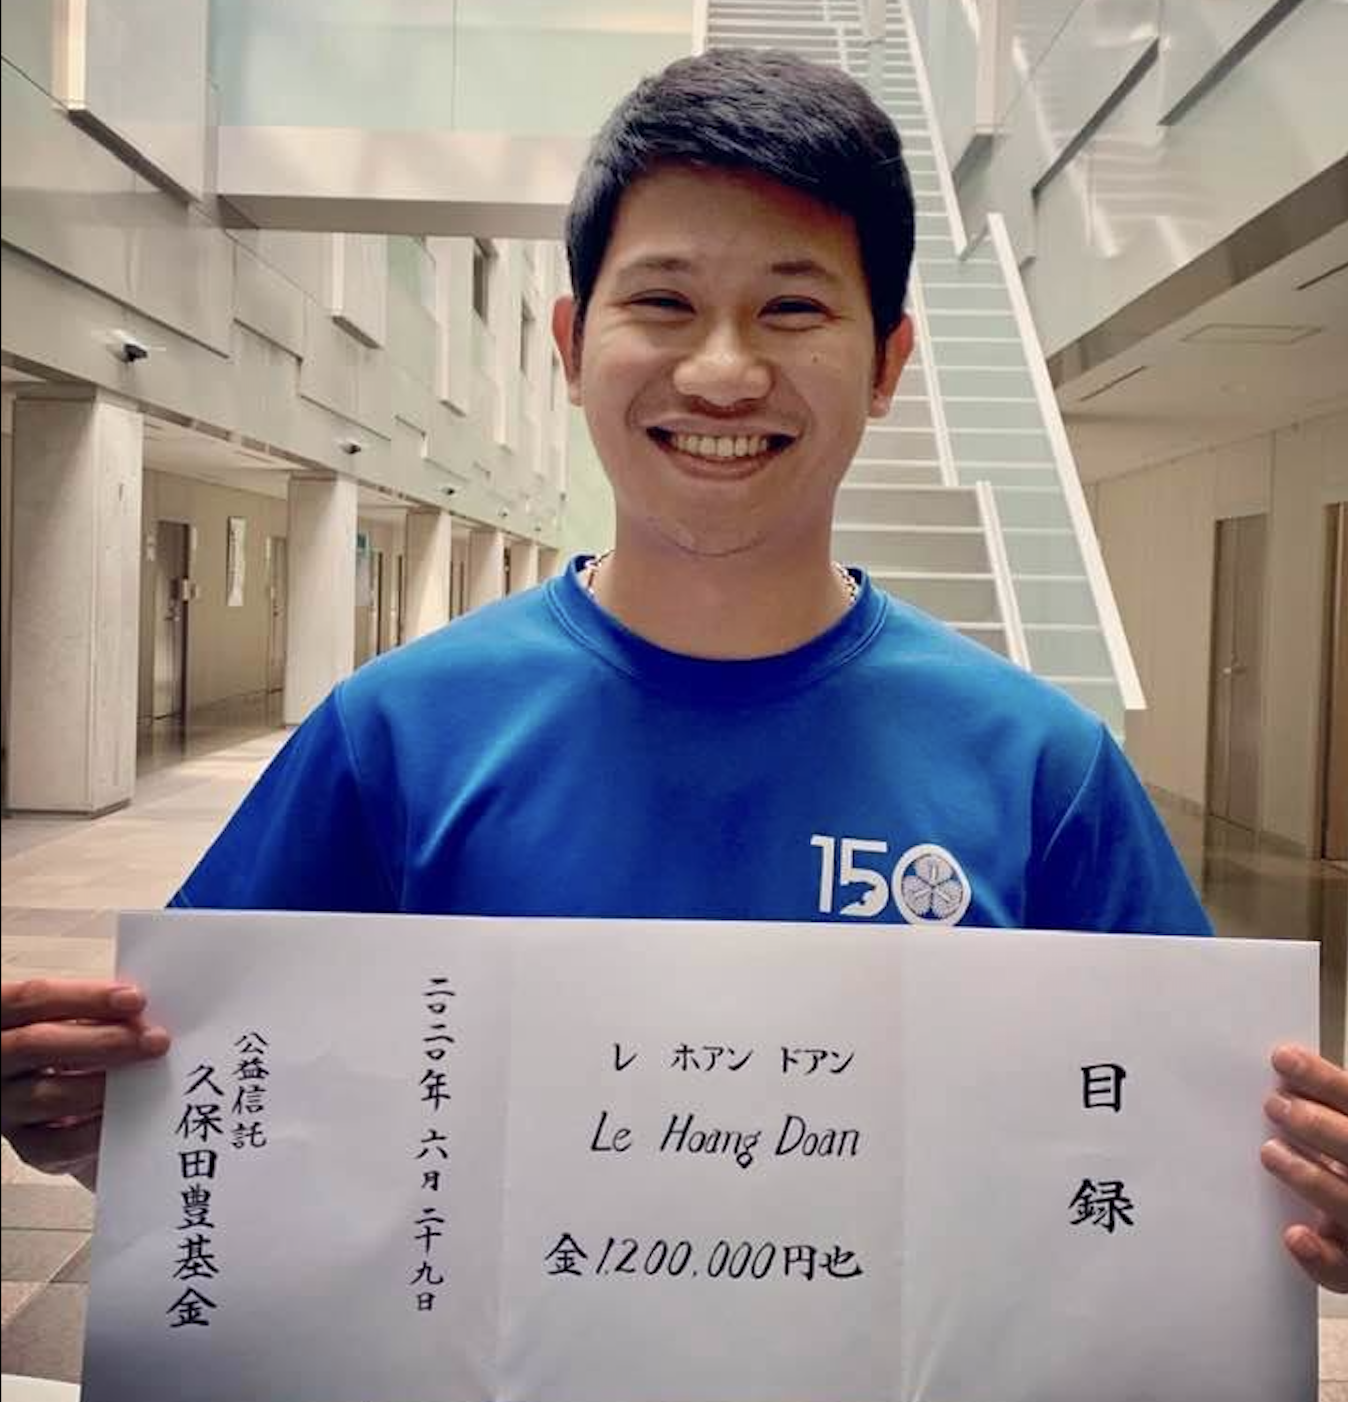 150
目録
レ ホアン ドアン
Le Hoang Doan
金1,200,000円也
二〇二〇年 六月 二十九日
公益信託
久保田豊基金